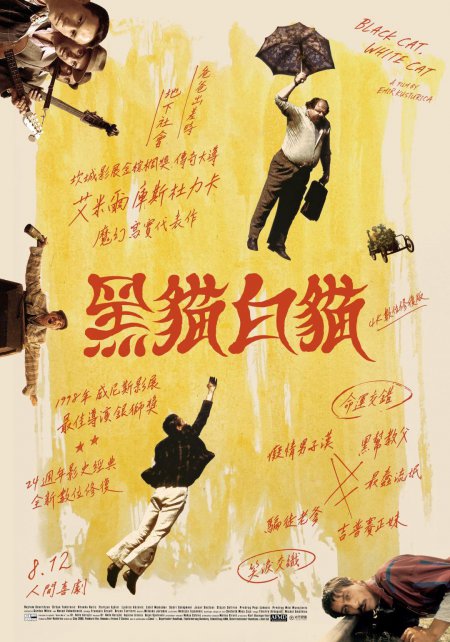 BLACK CAT,
WHITE CAT
A FILM BY
EMIR KUSTURICA
爸爸出差時
地下社會
坎城影展金棕櫚獎 傳奇大導
艾米爾庫斯杜力卡
魔幻寫實代表作
黑貓白貓
4K數位修復版
1998年威尼斯影展
最佳導演銀獅獎
24週年影史經典
全新數位修復
命運交錯
癡情男子漢
黑幫教父
最蠢流氓
騙徒老爹
吉普賽正妹
笑淚交織
8.12
人間喜劇